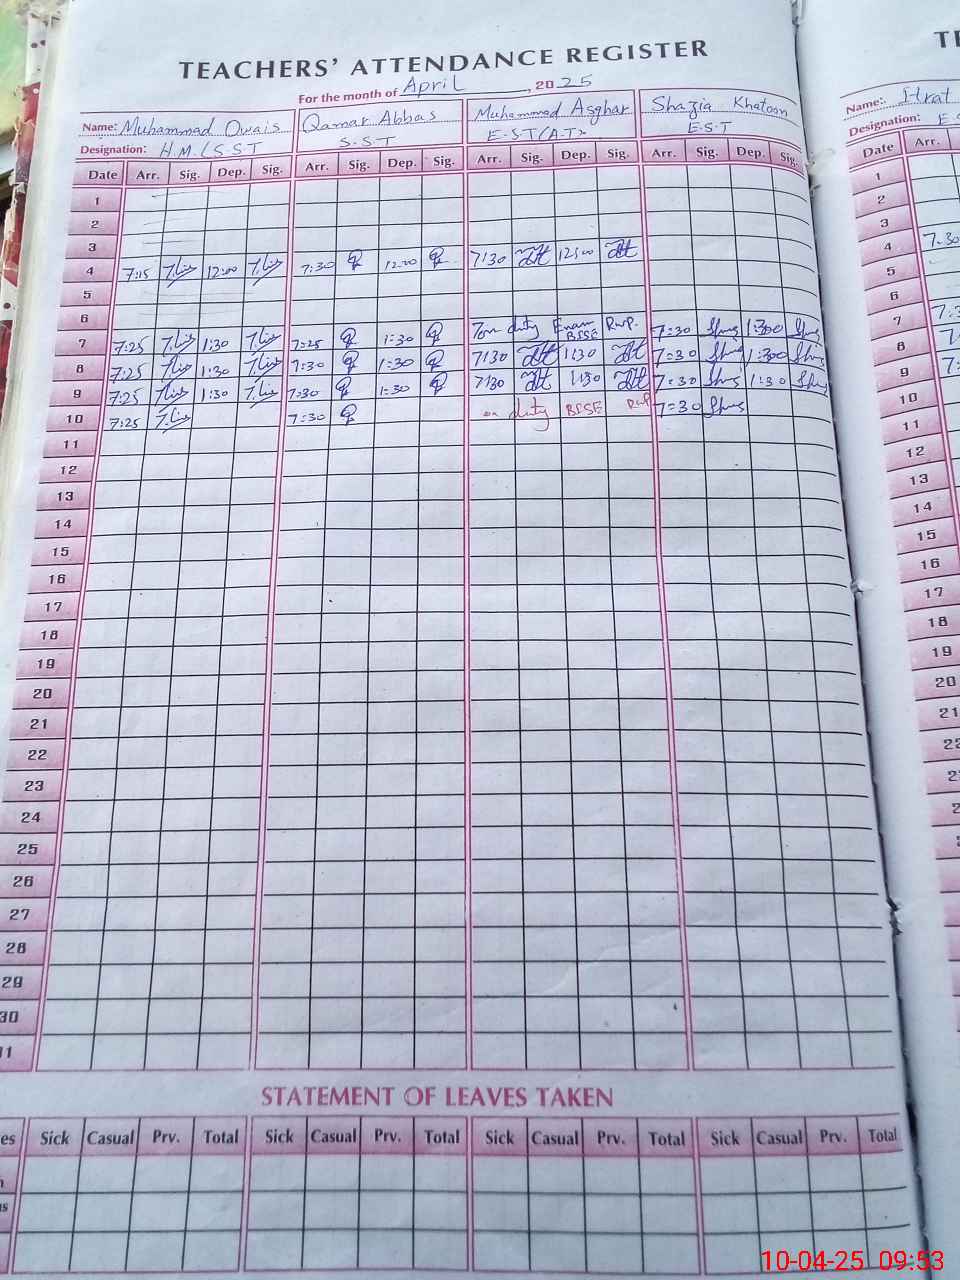 TEACHERS' ATTENDANCE REGISTER
For the month of April, 2025
Name: Muhammad Owais Qamar Abbas Muhammad Asghar Shazia Khatoon
Designation: H.M. (S.S.T S.S.T E.S.T (A.T) E.S.T
Date Arr. Sig. Dep. Sig. Arr. Sig. Dep. Sig. Arr. Sig. Dep. Sig. Arr. Sig. Dep. Sig.
1
2
3
4 7:15 12:00 7:30 12:00 7:30 12:00
5
6
7 7:25 1:30 7:25 1:30 duty Exam BISE Rwp. 7:30
8 7:25 1:30 7:30 1:30 7:30 1:30 7=30
9 7:25 1:30 7:30 1:30 7:30 1:30 7=30 1:30
10 7:25 7=30 on duty BISE Rwp 7=30
11
12
13
14
15
16
17
18
19
20
21
22
23
24
25
26
27
28
29
30
STATEMENT OF LEAVES TAKEN
Sick Casual Prv. Total Sick Casual Prv. Total Sick Casual Prv. Total Sick Casual Prv. Total
Name:
Designation:
Date Arr.
1
2
3
4 7.30
5
6
7
8
9
10
11
12
13
14
15
16
17
18
19
20
21
10-04-25 09:53